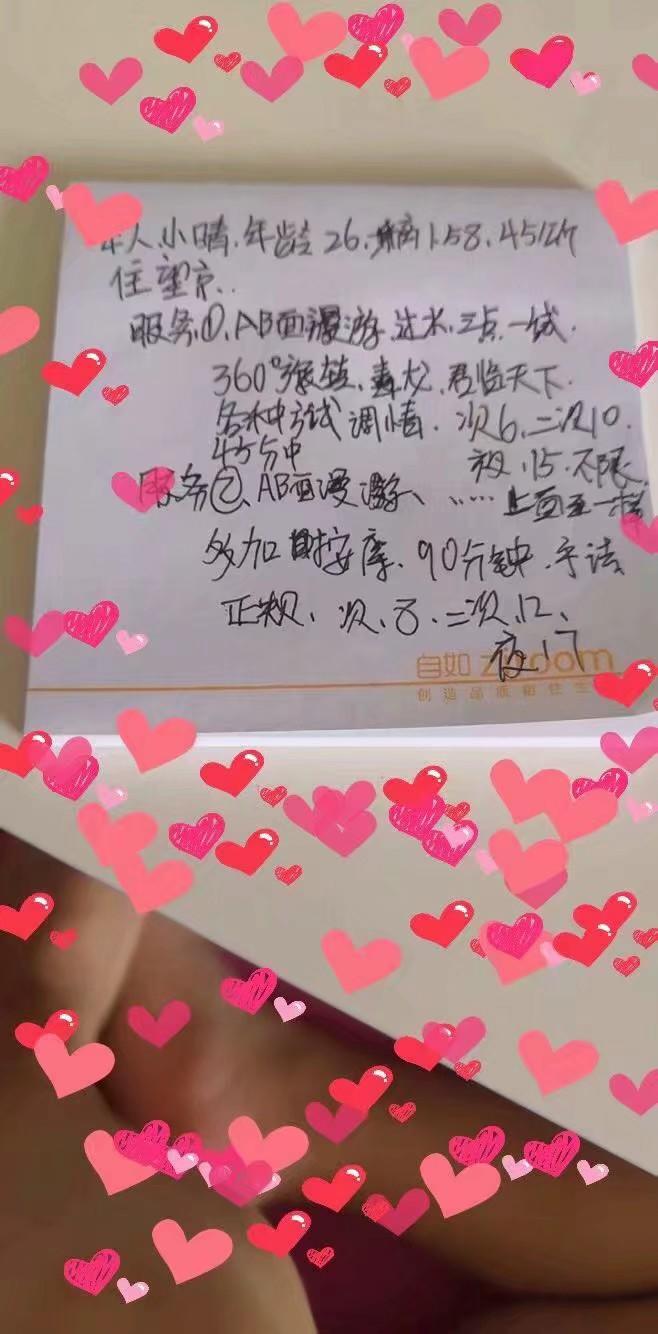 本人.小晴.年龄26.身高1.58.45公斤
住望京..
服务①.AB面漫游.过水.三点一线.
360°.毒龙.君临天下.
各种方式调情.次6.二次10.
45分中
夜.15.不限
服务②、AB面漫游、……上面五一样
多加 按摩.90分钟.手法
正规、次、8、二次、12、
夜17
自如 ziroom
创造品质租住生